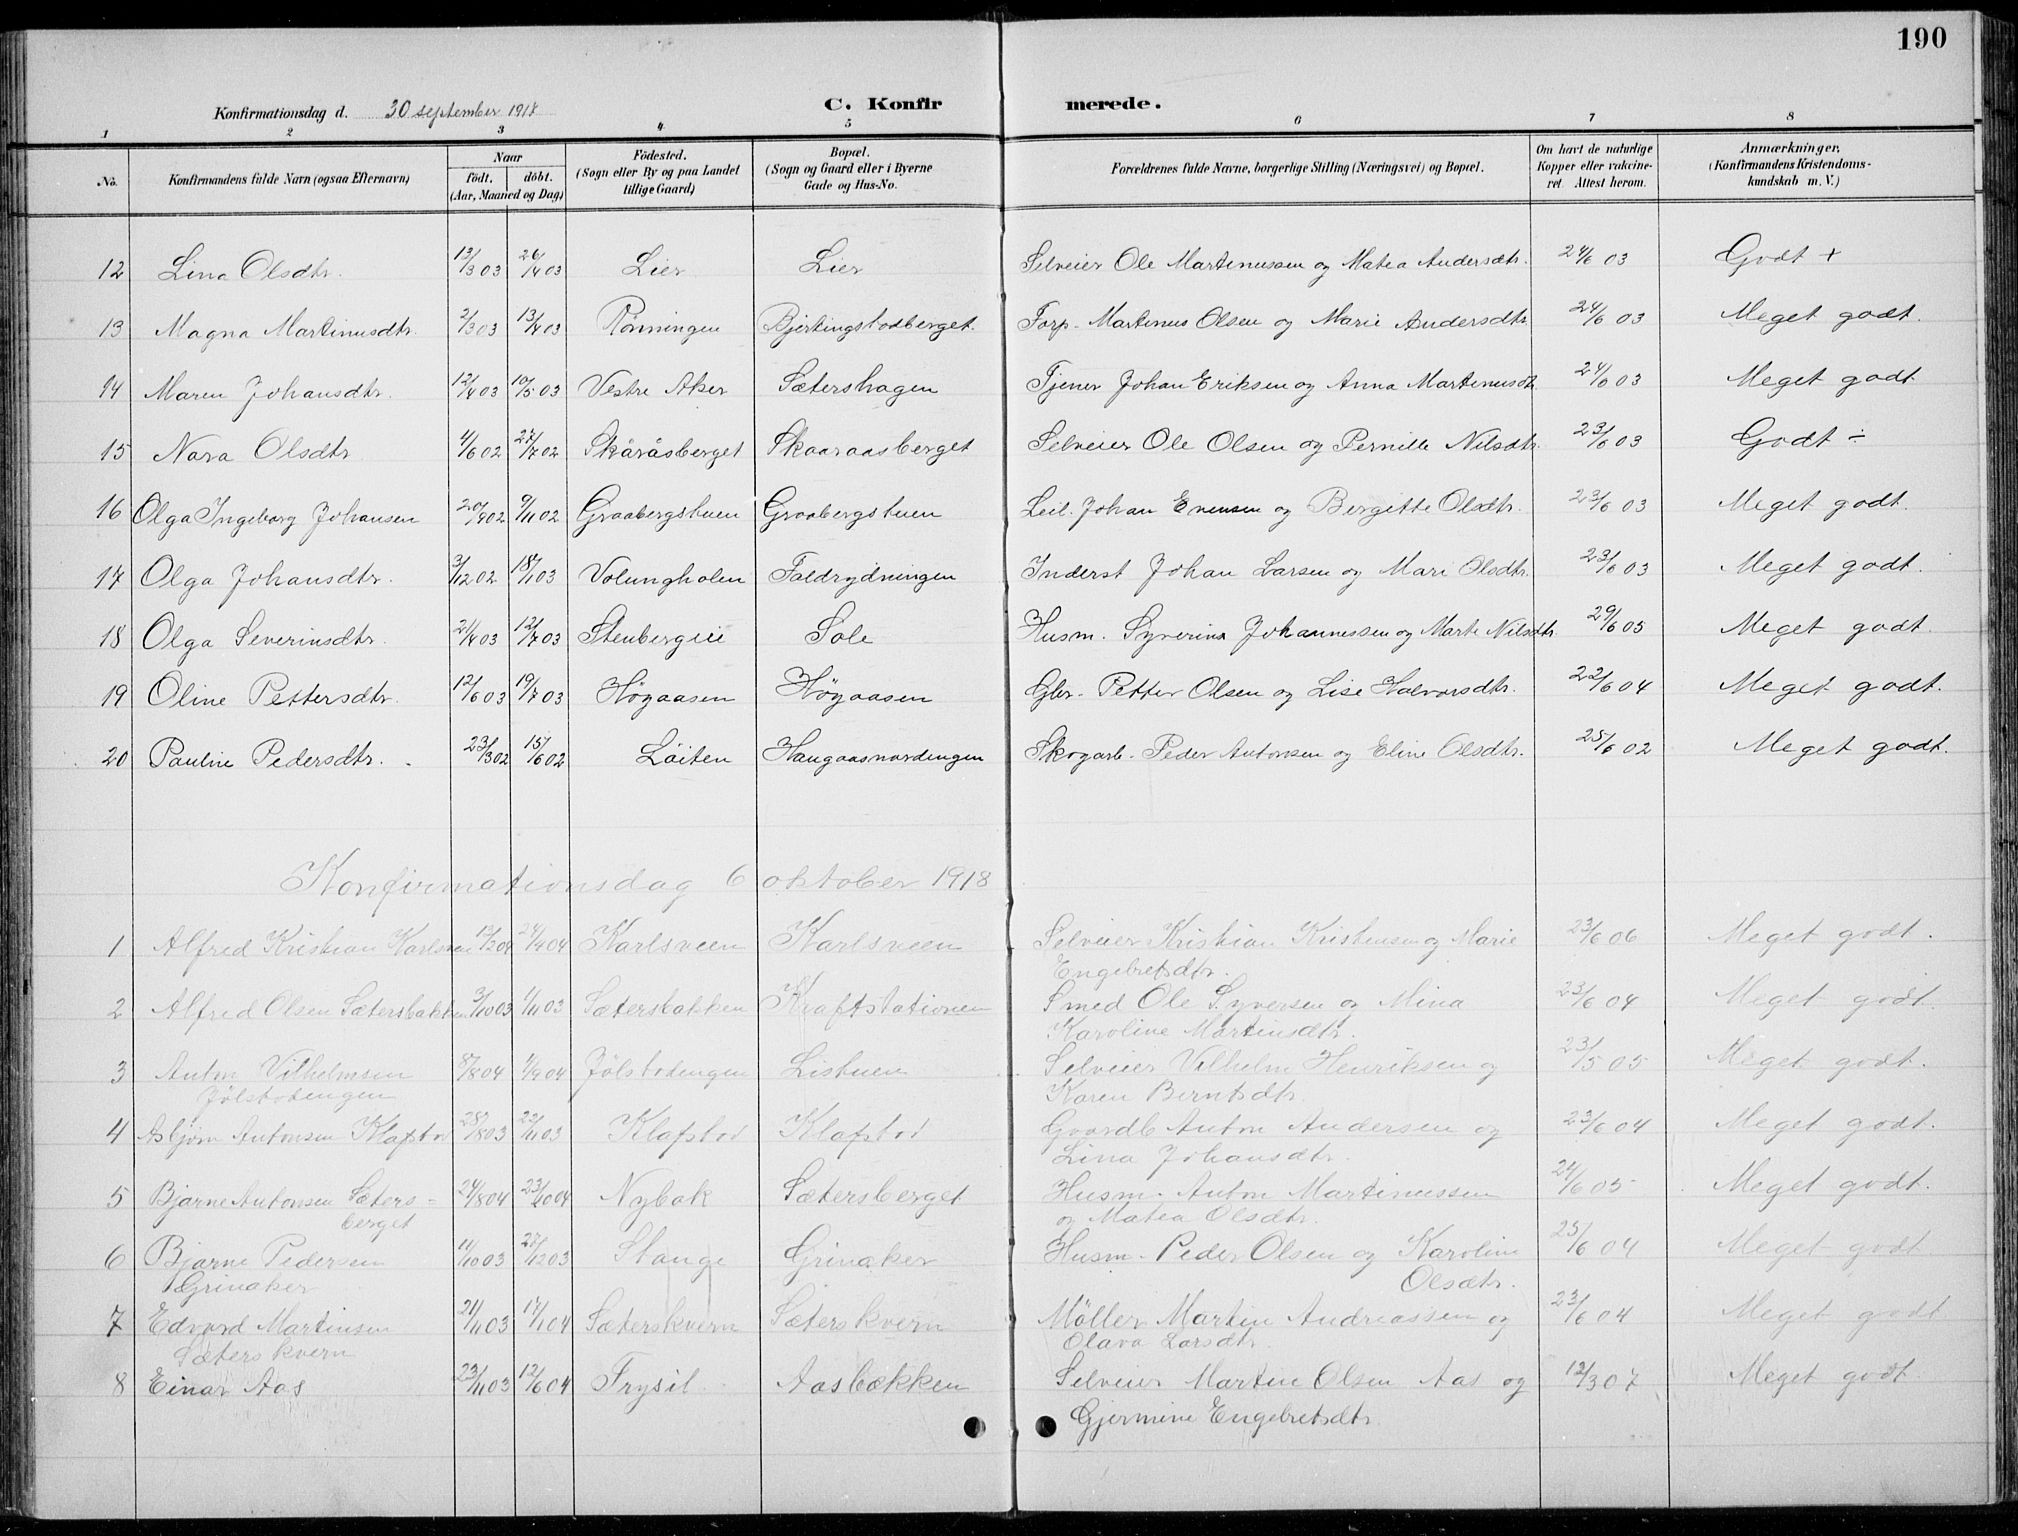 190
Konfirmationsdag d. 30 september 1917 C. Konfirmerede.
1 2 3 4 5 6 7 8
No. Konfirmandens fulde Navn (ogsaa Efternavn) Naar födt. döbt. (Aar, Maaned og Dag) Födested. (Sogn eller By og paa Landet tillige Gaard) Bopæl. (Sogn og Gaard eller i Byerne Gade og Hus-No. Forældrenes fulde Navne, borgerlige Stilling (Næringsvei) og Bopæl. Om havt de naturlige Kopper eller vakcineret. Attest herom. Anmærkninger, (Konfirmandens Kristendomskundskab m. V.)
12 Lina Olsdtr. 13/3 03 26/4 03 Lier Lier Selveier Ole Martinussen og Matea Andersdtr. 24/6 03 Godt +
13 Magna Martinusdtr. 2/3 03 13/4 03 Rönningen Bjertingstadberget. Torp. Martinus Olsen og Marie Andersdtr 24/6 03 Meget godt.
14 Maren Johansdtr. 12/4 03 10/5 03 Vestre Aker Sætershagen Tjener Johan Eriksen og Anna Martinusdtr 24/6 03 Meget godt
15 Nora Olsdtr 4/6 02 27/7 02 Skåråsberget Skaaraasberget Selveier Ole Olsen og Pernille Nilsdtr. 23/6 03 Godt ÷
16 Olga Ingeborg Johansen 20/9 02 9/11 02 Graabergstuen Graabergstuen Leil. Johan Evensen og Bergitte Olsdtr. 23/6 03 Meget godt.
17 Olga Johansdtr. 3/12 02 18/1 03 Volungholen Faldrydningen Inderst Johan Larsen og Mari Olsdtr. 23/6 03 Meget godt.
18 Olga Severinsdtr. 21/4 03 12/7 03 Stenbergeie Sole Husm. Syverin Johannessen og Marte Nilsdtr. 29/6 05 Meget godt.
19 Oline Pettersdtr. 12/6 03 19/7 03 Högaasen Högaasen Gbr. Petter Olsen og Lise Halvorsdtr. 22/6 04 Meget godt.
20 Pauline Pedersdtr. 23/3 02 15/6 02 Löiten Haugaasnordengen Skogarb. Peder Antonsen og Eline Olsdtr. 25/6 02 Meget godt.
Konfirmationsdag 6 oktober 1918
1 Alfred Kristian Karlsveen 12/2 04 24/4 04 Karlsveen Karlsveen Selveier Kristian Kristensen og Marie 23/6 06 Meget godt.
Engebretsdtr.
2 Alfred Olsen Sætersbakken 3/10 03 1/11 03 Sætersbakken Kraftstationen Smed Ole Syversen og Mina 23/6 04 Meget godt.
Karoline Martinsdtr.
3 Anton Vilhelmsen 8/8 04 4/9 04 Jølstadengen Listuen Selveier Vilhelm Henriksen og 23/5 05 Meget godt.
Jølstadengen Karen Berntsdtr.
4 Asbjørn Antonsen Klafstad 28/8 03 22/11 03 Klafstad Klafstad Gaardb Anton Andersen og 23/6 04 Meget godt.
Lina Johansdtr.
5 Bjarne Antonsen Sæters- 24/8 04 23/10 04 Nybak Sætersberget Husm. Anton Martinussen 24/6 05 Meget godt.
berget og Matea Olsdtr.
6 Bjarne Pedersen 11/10 03 27/12 03 Stange Grinaker Husm. Peder Olsen og Karoline 25/6 04 Meget godt
Grinaker Olsdtr.
7 Edvard Martinsen 21/11 03 17/1 04 Sæterskvern Sæterskvern Møller Martin Andreassen og 23/6 04 Meget godt
Sæterskvern Olava Larsdtr.
8 Einar Aas 23/11 03 12/6 04 Trysil Aasbækken Selveier Martin Olsen Aas og 12/3 07 Meget godt.
Gjermine Engebretsdtr.